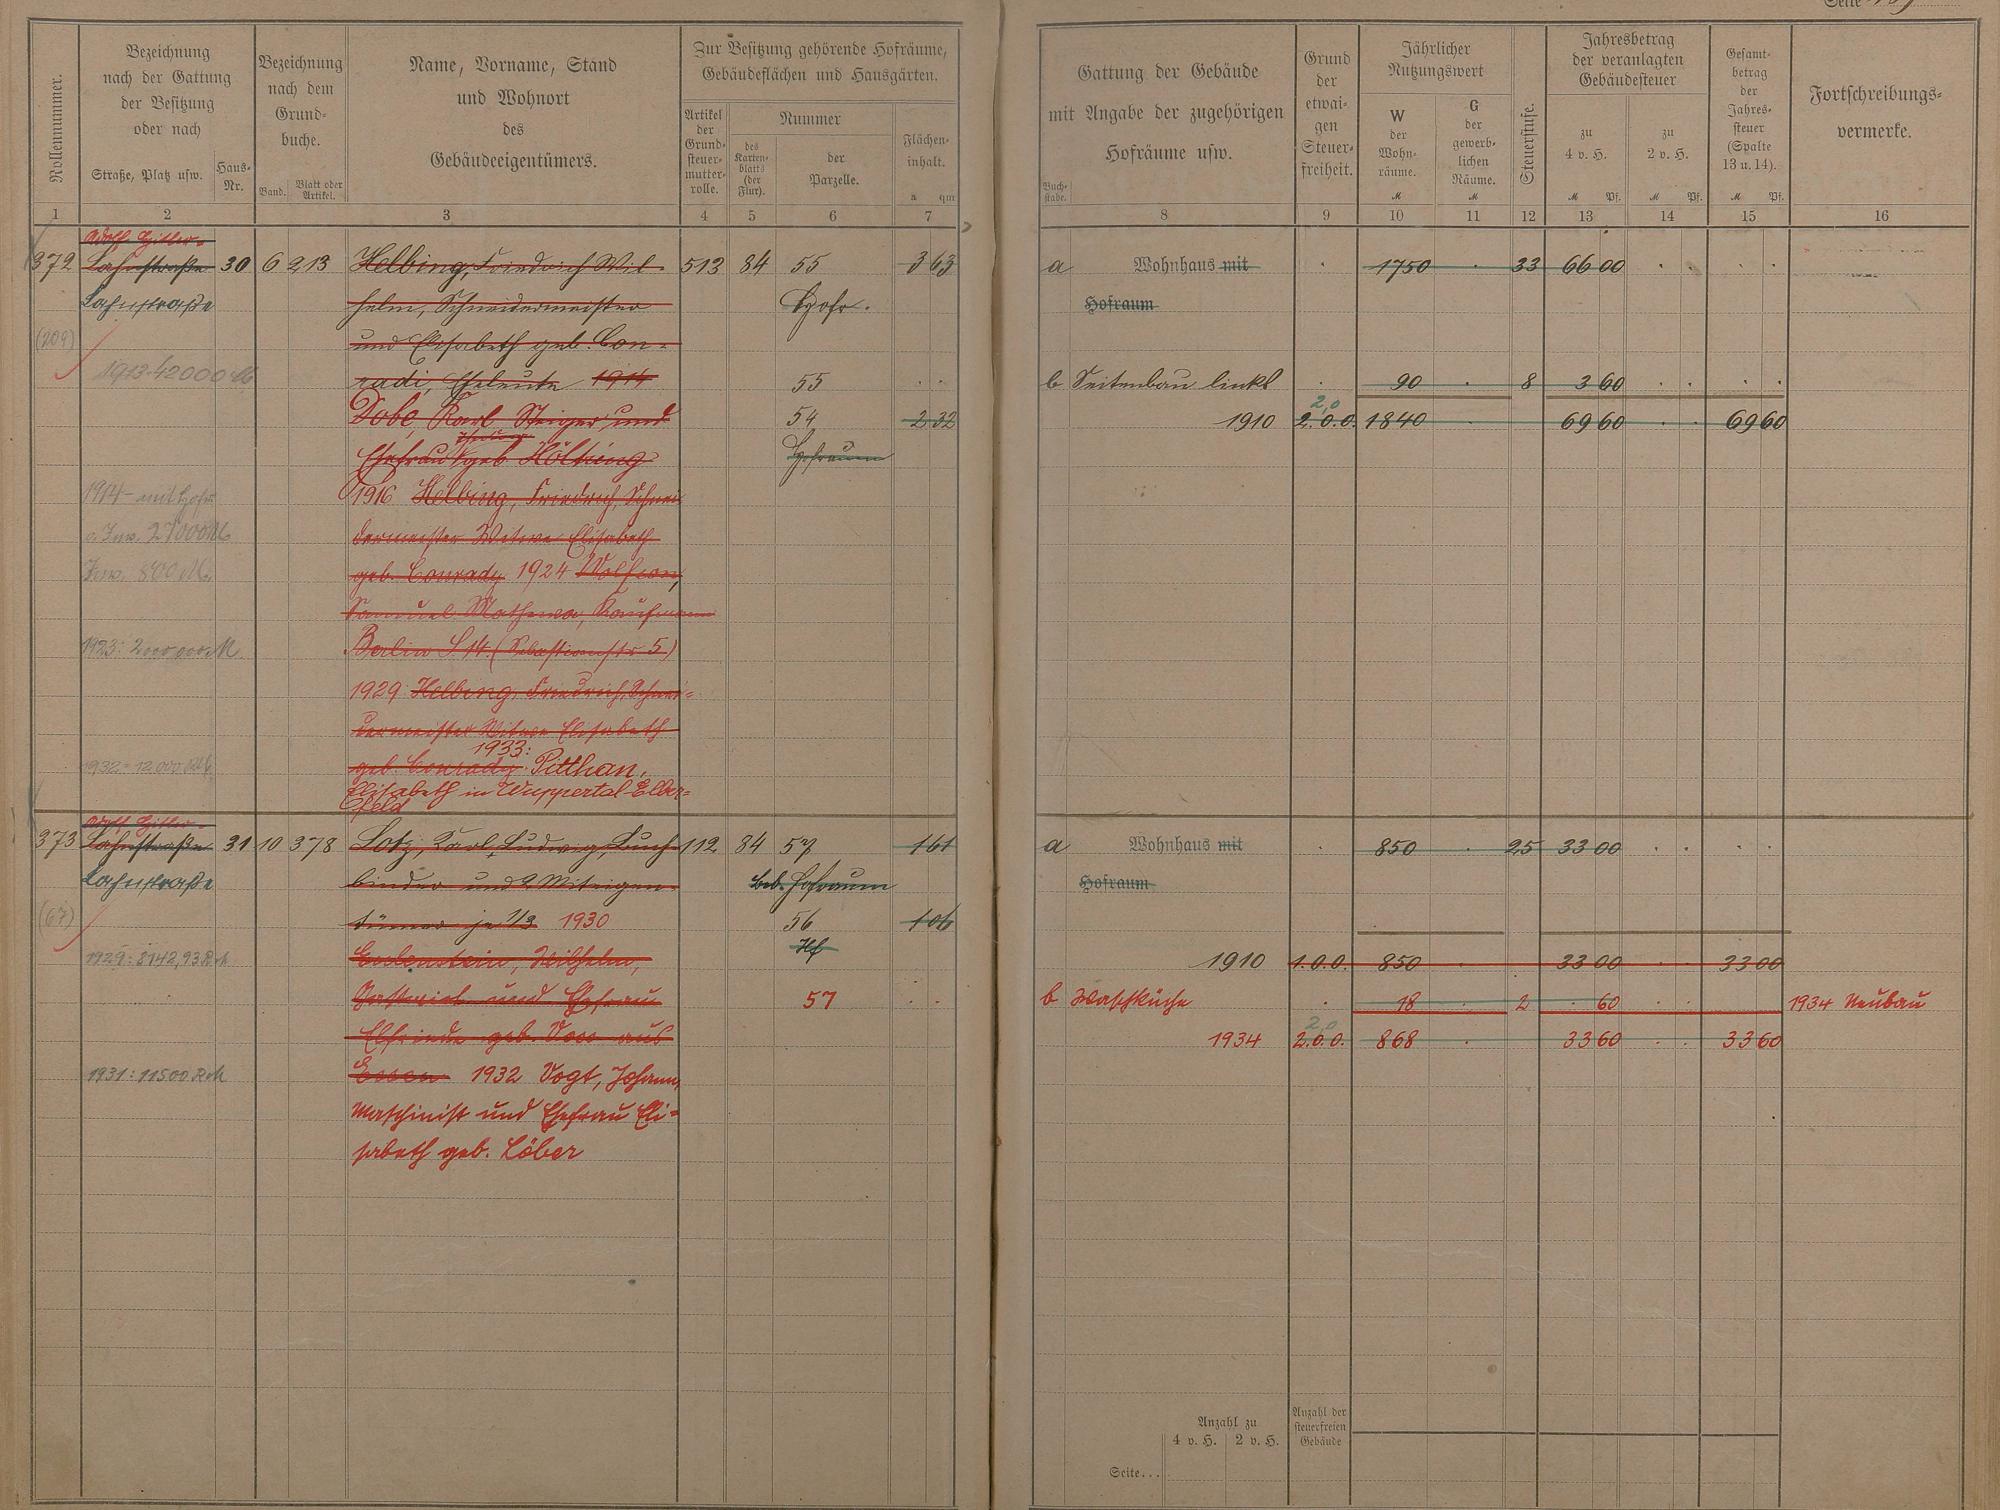 Seite
Rollennummer.
Bezeichnung
nach der Gattung
der Besitzung
oder nach
Straße, Platz usw.
Haus-
Nr.
Bezeichnung
nach dem
Grund-
buche.
Band.
Blatt oder
Artikel.
Name, Vorname, Stand
und Wohnort
des
Gebäudeeigentümers.
Zur Besitzung gehörende Hofräume,
Gebäudeflächen und Hausgärten.
Artikel
der
Grund-
steuer-
mutter-
rolle.
Nummer
des
Karten-
blatts
(der
Flur).
der
Parzelle.
Flächen-
inhalt.
a qm
Gattung der Gebäude
mit Angabe der zugehörigen
Hofräume usw.
Buch-
stabe.
Grund
der
etwai-
gen
Steuer-
freiheit.
Jährlicher
Nutzungswert
W
der
Wohn-
räume.
M
G
der
gewerb-
lichen
Räume.
M
Steuerstufe.
Jahresbetrag
der veranlagten
Gebäudesteuer
zu
4 v. H.
M Pf.
zu
2 v. H.
M Pf.
Gesamt-
betrag
der
Jahres-
steuer
(Spalte
13 u. 14).
M Pf.
Fortschreibungs-
vermerke.
1 2 3 4 5 6 7 8 9 10 11 12 13 14 15 16
Adolf Hitler-
372 Lahnstraße 30 6 213 Helbing, Friedrich Wil- 513 84 55 3 63 a Wohnhaus mit 1750 33 66 00
Lahnstraße helm, Schneidermeister Hofr. Hofraum
(209) und Elisabeth geb. Con-
1913-42000 M radi, Eheleute 1914 55 b Seitenbau links 90 8 3 60
Dobe, Karl Steiger und 54 2 32 1910 2.0.0. 1840 69 60 69 60
2,0
Ehefrau geb. Hölting Hofraum
1914 - mit Hofr. 1916 Helbing, Friedrich, Schnei
27000 M dermeister Witwe Elisabeth
800 M. geb. Conrady 1924 Wolfson,
Samuel Kaufmann
1923: 2000000 M Berlin S 14. (Sebastianstr 5)
1929 Helbing, Friedrich, Schnei-
dermeister Witwe Elisabeth
1933:
1932 = 12000 RM geb. Conrady. Pitthan,
Elisabeth in Wuppertal-Elber-
feld
Adolf Hitler-
373 Lahnstraße 31 10 378 Lotz, Karl, Ludwig, Buch- 112 84 57 1 61 a Wohnhaus mit 850 25 33 00
Lahnstraße binder und 2 Miteigen- beb. Hofraum Hofraum
(67) tümer je 1/3 1930 56 1 06
Hf
1929: 8142,93 RM Wilhelm, 1910 1.0.0. 850 33 00 33 00
Gastwirt und Ehefrau 57 b Waschküche 18 2 60 1934 Neubau
Elfriede geb. Voss aus 1934 2.0.0. 868 33 60 33 60
2,0
1931: 11500 RM Essen 1932 Vogt, Johann,
Maschinist und Ehefrau Eli-
sabeth geb. Löber
Anzahl zu
4 v. H. 2 v. H.
Anzahl der
steuerfreien
Gebäude
Seite...